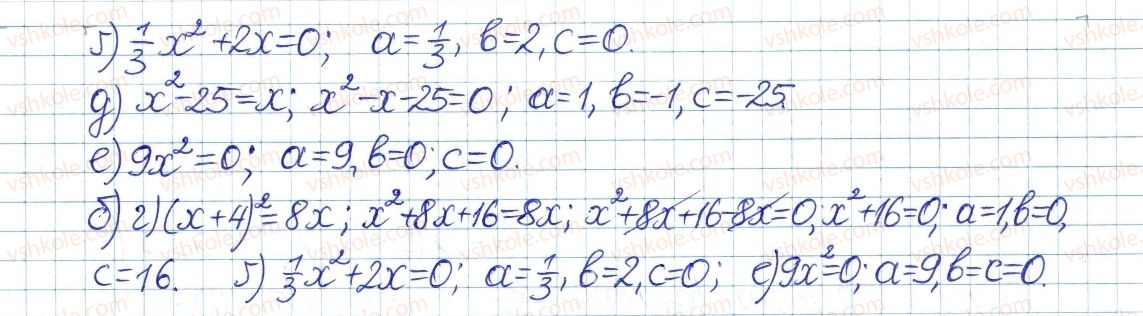 ґ) 1/3 x² + 2x = 0; a = 1/3, b = 2, c = 0.
д) x² - 25 = x; x² - x - 25 = 0; a = 1, b = -1, c = -25.
е) 9x² = 0; a = 9, b = 0; c = 0.
б) г) (x + 4)² = 8x; x² + 8x + 16 = 8x; x² + 8x + 16 - 8x = 0; x² + 16 = 0; a = 1, b = 0,
c = 16. ґ) 1/3 x² + 2x = 0; a = 1/3, b = 2, c = 0; е) 9x² = 0; a = 9, b = c = 0.